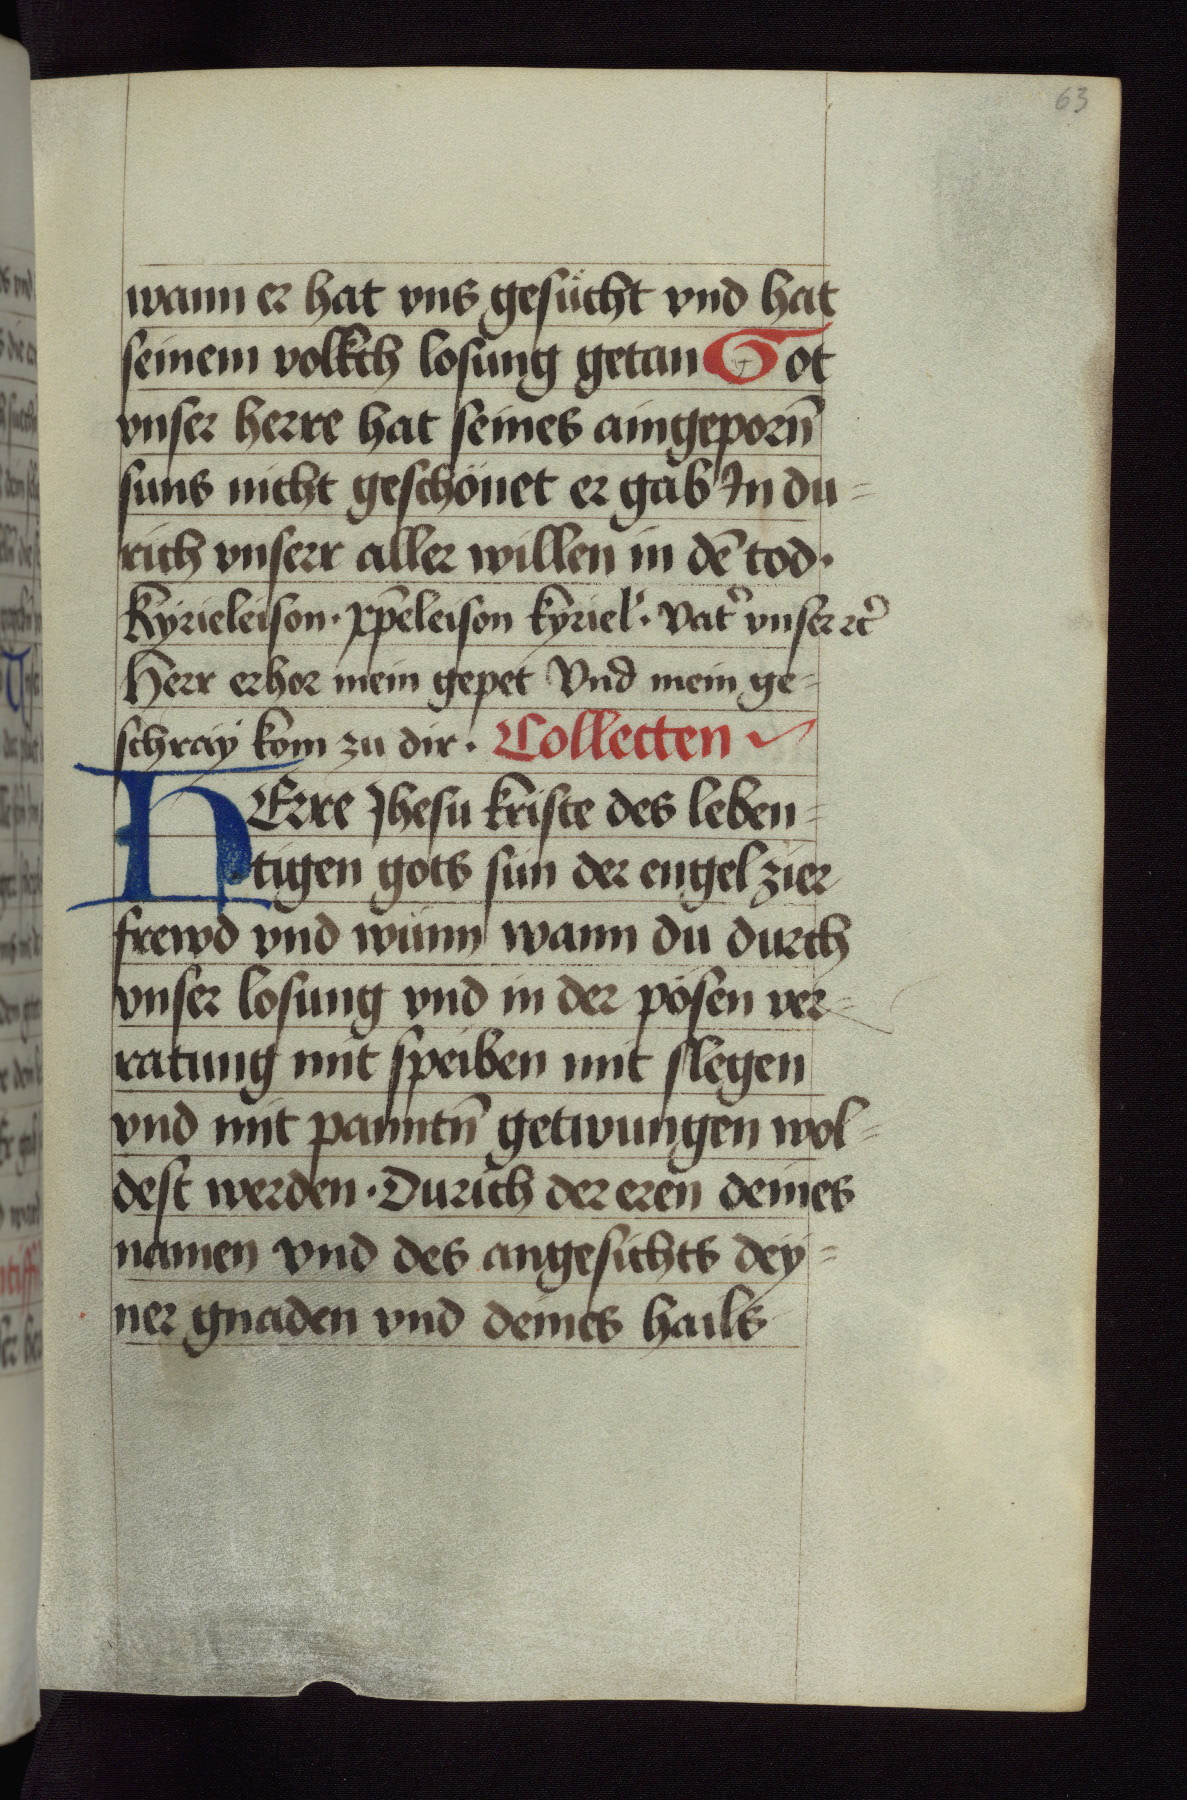 63
wann er hat vns gesücht vnd hat
seinem volkch losung getan Got
vnser herre hat seines aingeporn̄
suns nicht geschönet er gab In du=
rich vnserr aller willen in dē tod·
Kyrieleison· xp̄eleison kyriel͛· Vat͛ vnser ꝛc͛
Herr erhor mein gepet Vnd mein ge=
schray kom zu dir· Collecten
HErre Jhesu kriste des leben=
tigen gots sun der engel zier
frewd vnd wünn wann du durch
vnser losung vnd in der pösen ver=
ratung mit speiben mit slegen
vnd mit panntn̄ getwungen wol=
dest werden· Durich der eren deines
namen vnd des angesichts dey=
ner gnaden vnd deines hails